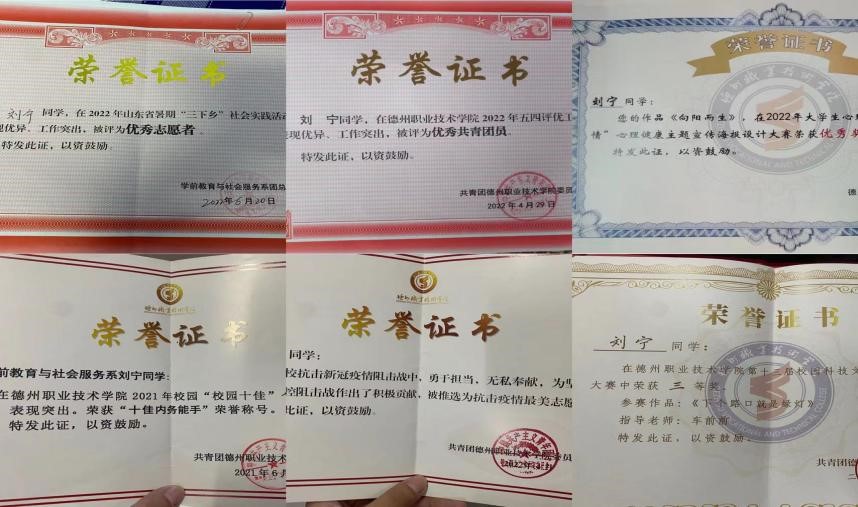 荣誉证书
刘宁 同学，在2022年山东省暑期“三下乡”社会实践活动
现优异、工作突出，被评为优秀志愿者。
特发此证，以资鼓励。
学前教育与社会服务系团总
2022年6月20日
荣誉证书
刘 宁同学，在德州职业技术学院2022年五四评优工
现优异、工作突出，被评为优秀共青团员。
特发此证，以资鼓励。
共青团德州职业技术学院委员
2022年4月29日
荣誉证书
刘宁同学：
您的作品《向阳而生》，在2022年大学生心理
情”心理健康主题宣传海报设计大赛荣获优秀奖
特发此证，以资鼓励。
德
德州职业技术学院
荣誉证书
前教育与社会服务系刘宁同学：
在德州职业技术学院2021年校园“校园十佳”
表现突出。荣获“十佳内务能手”荣誉称号。
特发此证，以资鼓励。
共青团德州职业技术
2021年6月
德州职业技术学院
荣誉证书
同学：
校抗击新冠疫情阻击战中，勇于担当、无私奉献，为坚
控阻击战作出了积极贡献，被推选为抗击疫情最美志愿
此证，以资鼓励。
共青团德州职业技术学院委员
荣誉证书
刘宁 同学：
在德州职业技术学院第十三届校园科技文
大赛中荣获 三 等奖。
参赛作品：《下个路口就是绿灯》
指导老师：车前前
特发此证，以资鼓励。
共青团德
二